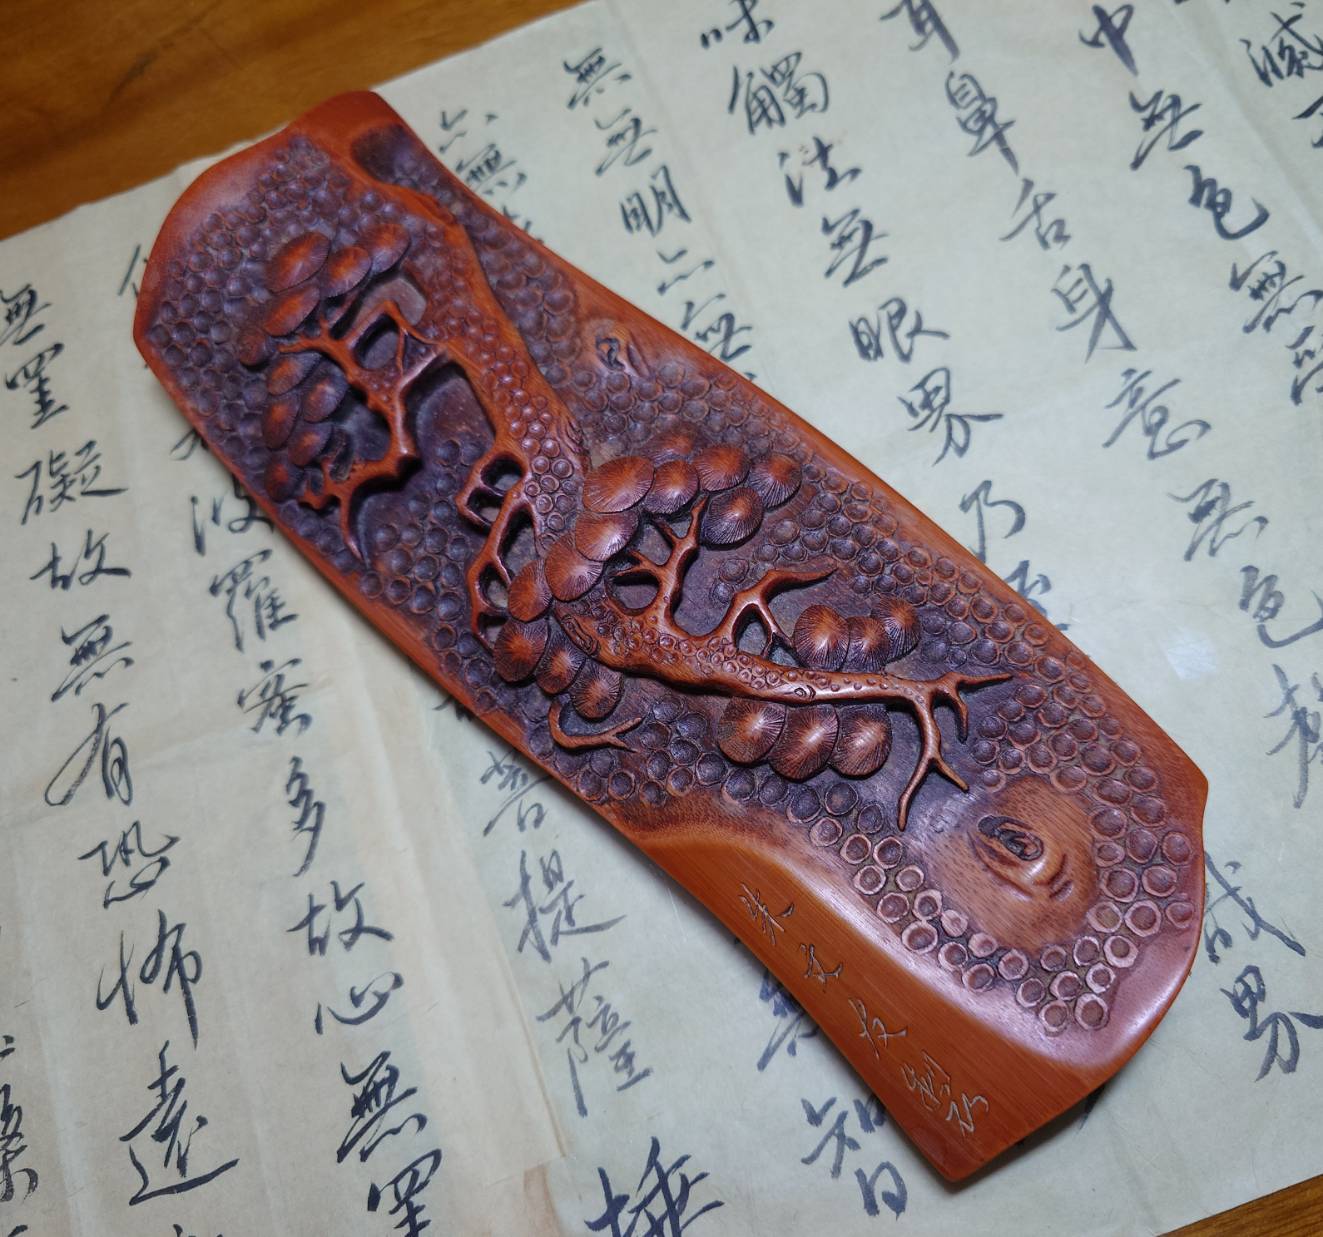 中無色無受
耳鼻舌身意無色聲
味觸法無眼界乃至
界
無無明亦無
亦無
智
菩提薩埵
波羅蜜多故心無罣
無罣礙故無有恐怖遠
朱文友